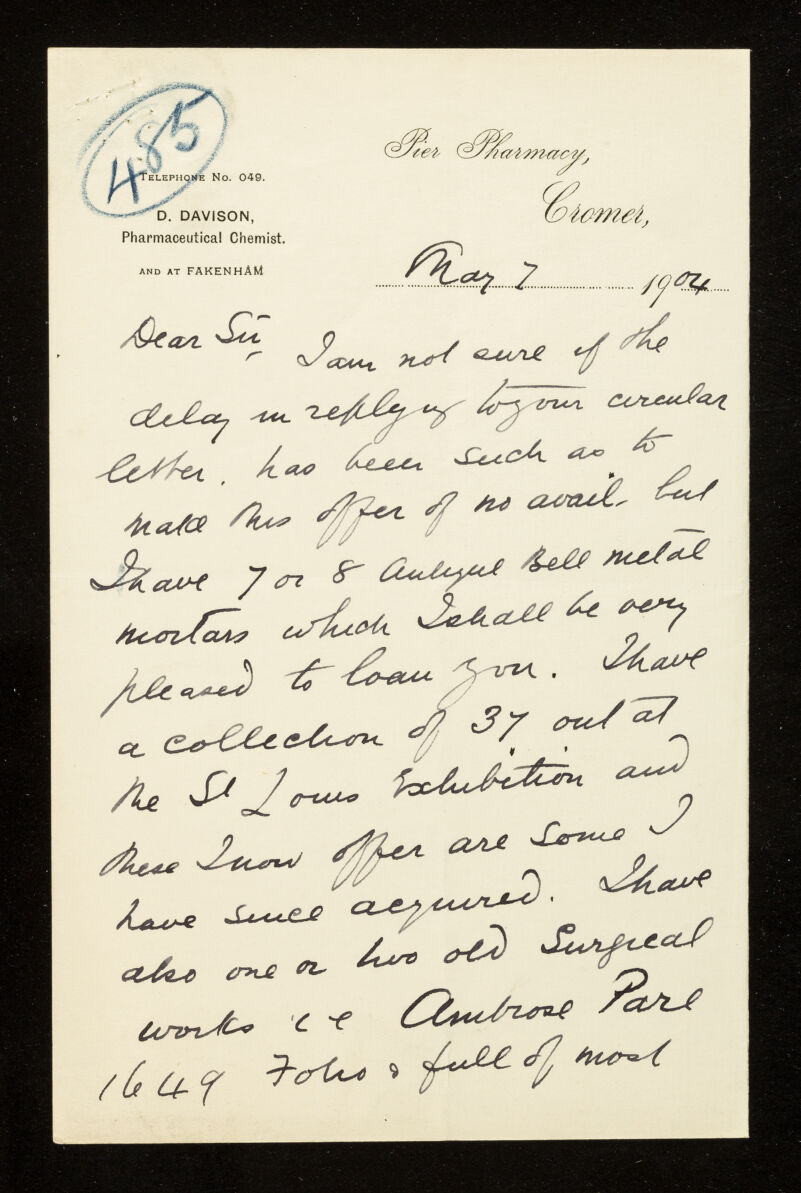 485
Pier Pharmacy,
TELEPHONE NO. 049.
Cromer,
D. DAVISON,
Pharmaceutical Chemist.
AND AT FAKENHAM
May 7 1904
Dear Sir,
I am not sure if the
delay in replying to your circular
letter, has been such as to
make this offer of no avail - but
I have 7 or 8 Antique Bell metal
mortars which I shall be very
pleased to loan you. I have
a collection of 37 out at
the St Louis Exhibition and
these I now offer are some I
have since acquired. I have
also one or two old Surgical
works i e Ambrose Pare
1649 Folio & full of most